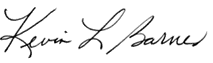 Kevin L Barnes